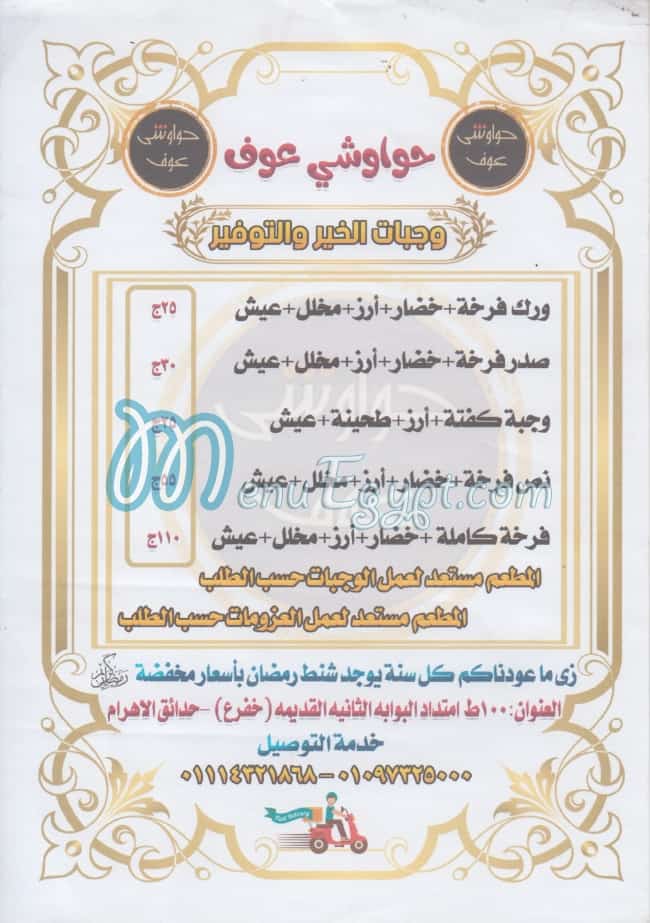 حواوشى
عوف
حواوشي عوف
حواوشى
عوف
وجبات الخير والتوفير
ورك فرخة+خضار+أرز+مخلل+عيش ٢٥ج
صدر فرخة+خضار+أرز+مخلل+عيش ٣٠ج
وجبة كفتة+أرز+طحينة+عيش
نص فرخة+خضار+أرز+مخلل+عيش ٥٥ج
MenuEgypt.com
فرخة كاملة+خضار+أرز+مخلل+عيش ١١٠ج
المطعم مستعد لعمل الوجبات حسب الطلب
المطعم مستعد لعمل العزومات حسب الطلب
زى ما عودناكم كل سنة يوجد شنط رمضان بأسعار مخفضة
العنوان:١٠٠ط امتداد البوابه الثانيه القديمه (خفرع) -حدائق الاهرام
خدمة التوصيل
٠١٠٩٧٣٢٥٠٠٠ - ٠١١١٤٣٢١٨٦٨